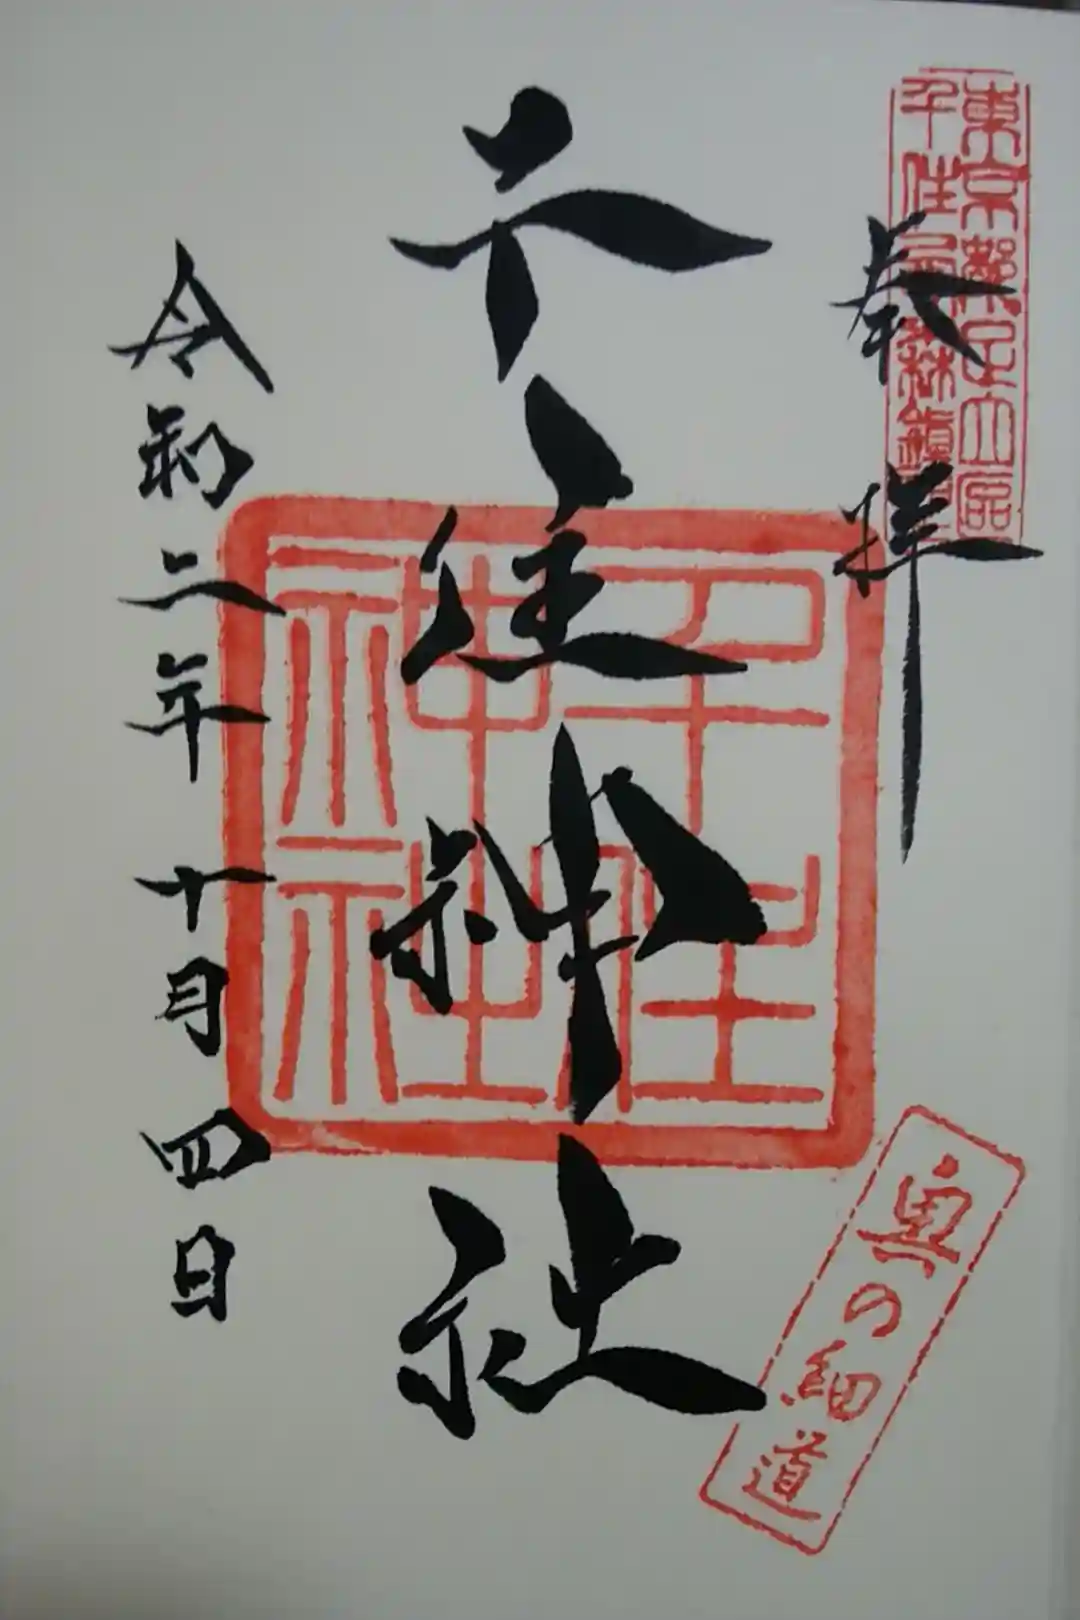 東京都足立区
奉拝
千住神社
千住神社
奥の細道
令和二年十月四日